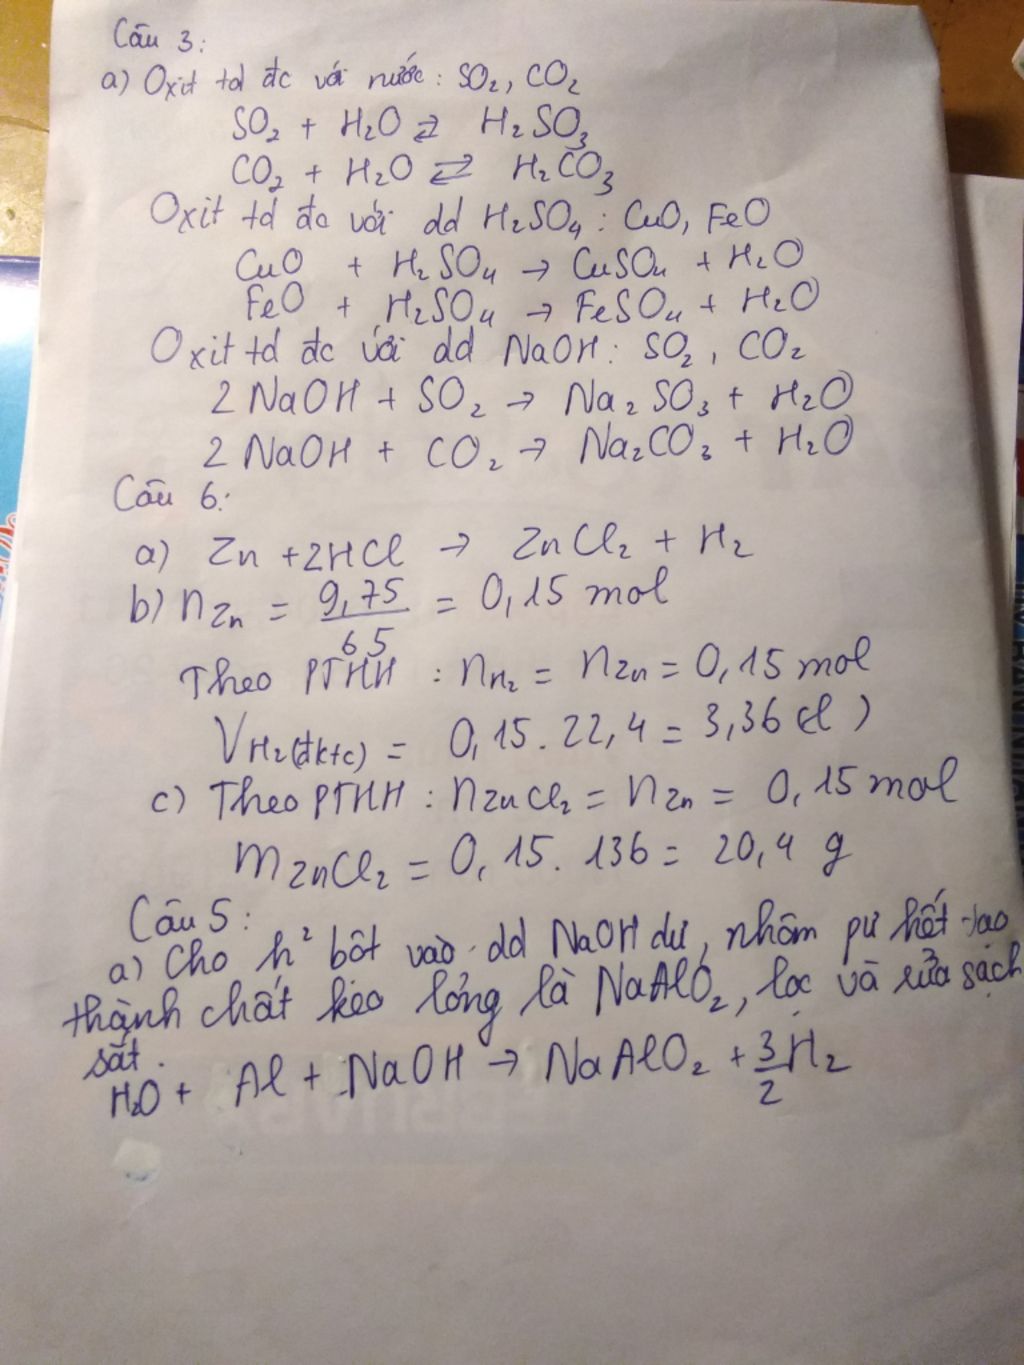 Câu 3:
a) Oxit td đc với nước: SO2, CO2
SO2 + H2O ⇌ H2SO3
CO2 + H2O ⇌ H2CO3
Oxit td đc với dd H2SO4: CuO, FeO
CuO + H2SO4 → CuSO4 + H2O
FeO + H2SO4 → FeSO4 + H2O
Oxit td đc với dd NaOH: SO2, CO2
2 NaOH + SO2 → Na2SO3 + H2O
2 NaOH + CO2 → Na2CO3 + H2O
Câu 6:
a) Zn + 2HCl → ZnCl2 + H2
b) nZn = 9,75/65 = 0,15 mol
Theo PTHH: nH2 = nZn = 0,15 mol
VH2(đktc) = 0,15. 22,4 = 3,36 (l)
c) Theo PTHH: nZnCl2 = nZn = 0,15 mol
mZnCl2 = 0,15. 136 = 20,4 g
Câu 5:
a) Cho h² bột vào dd NaOH dư, nhôm pư hết tạo
thành chất kéo lỏng là NaAlO2, lọc và rửa sạch
sắt.
H2O + Al + NaOH → NaAlO2 + 3/2 H2